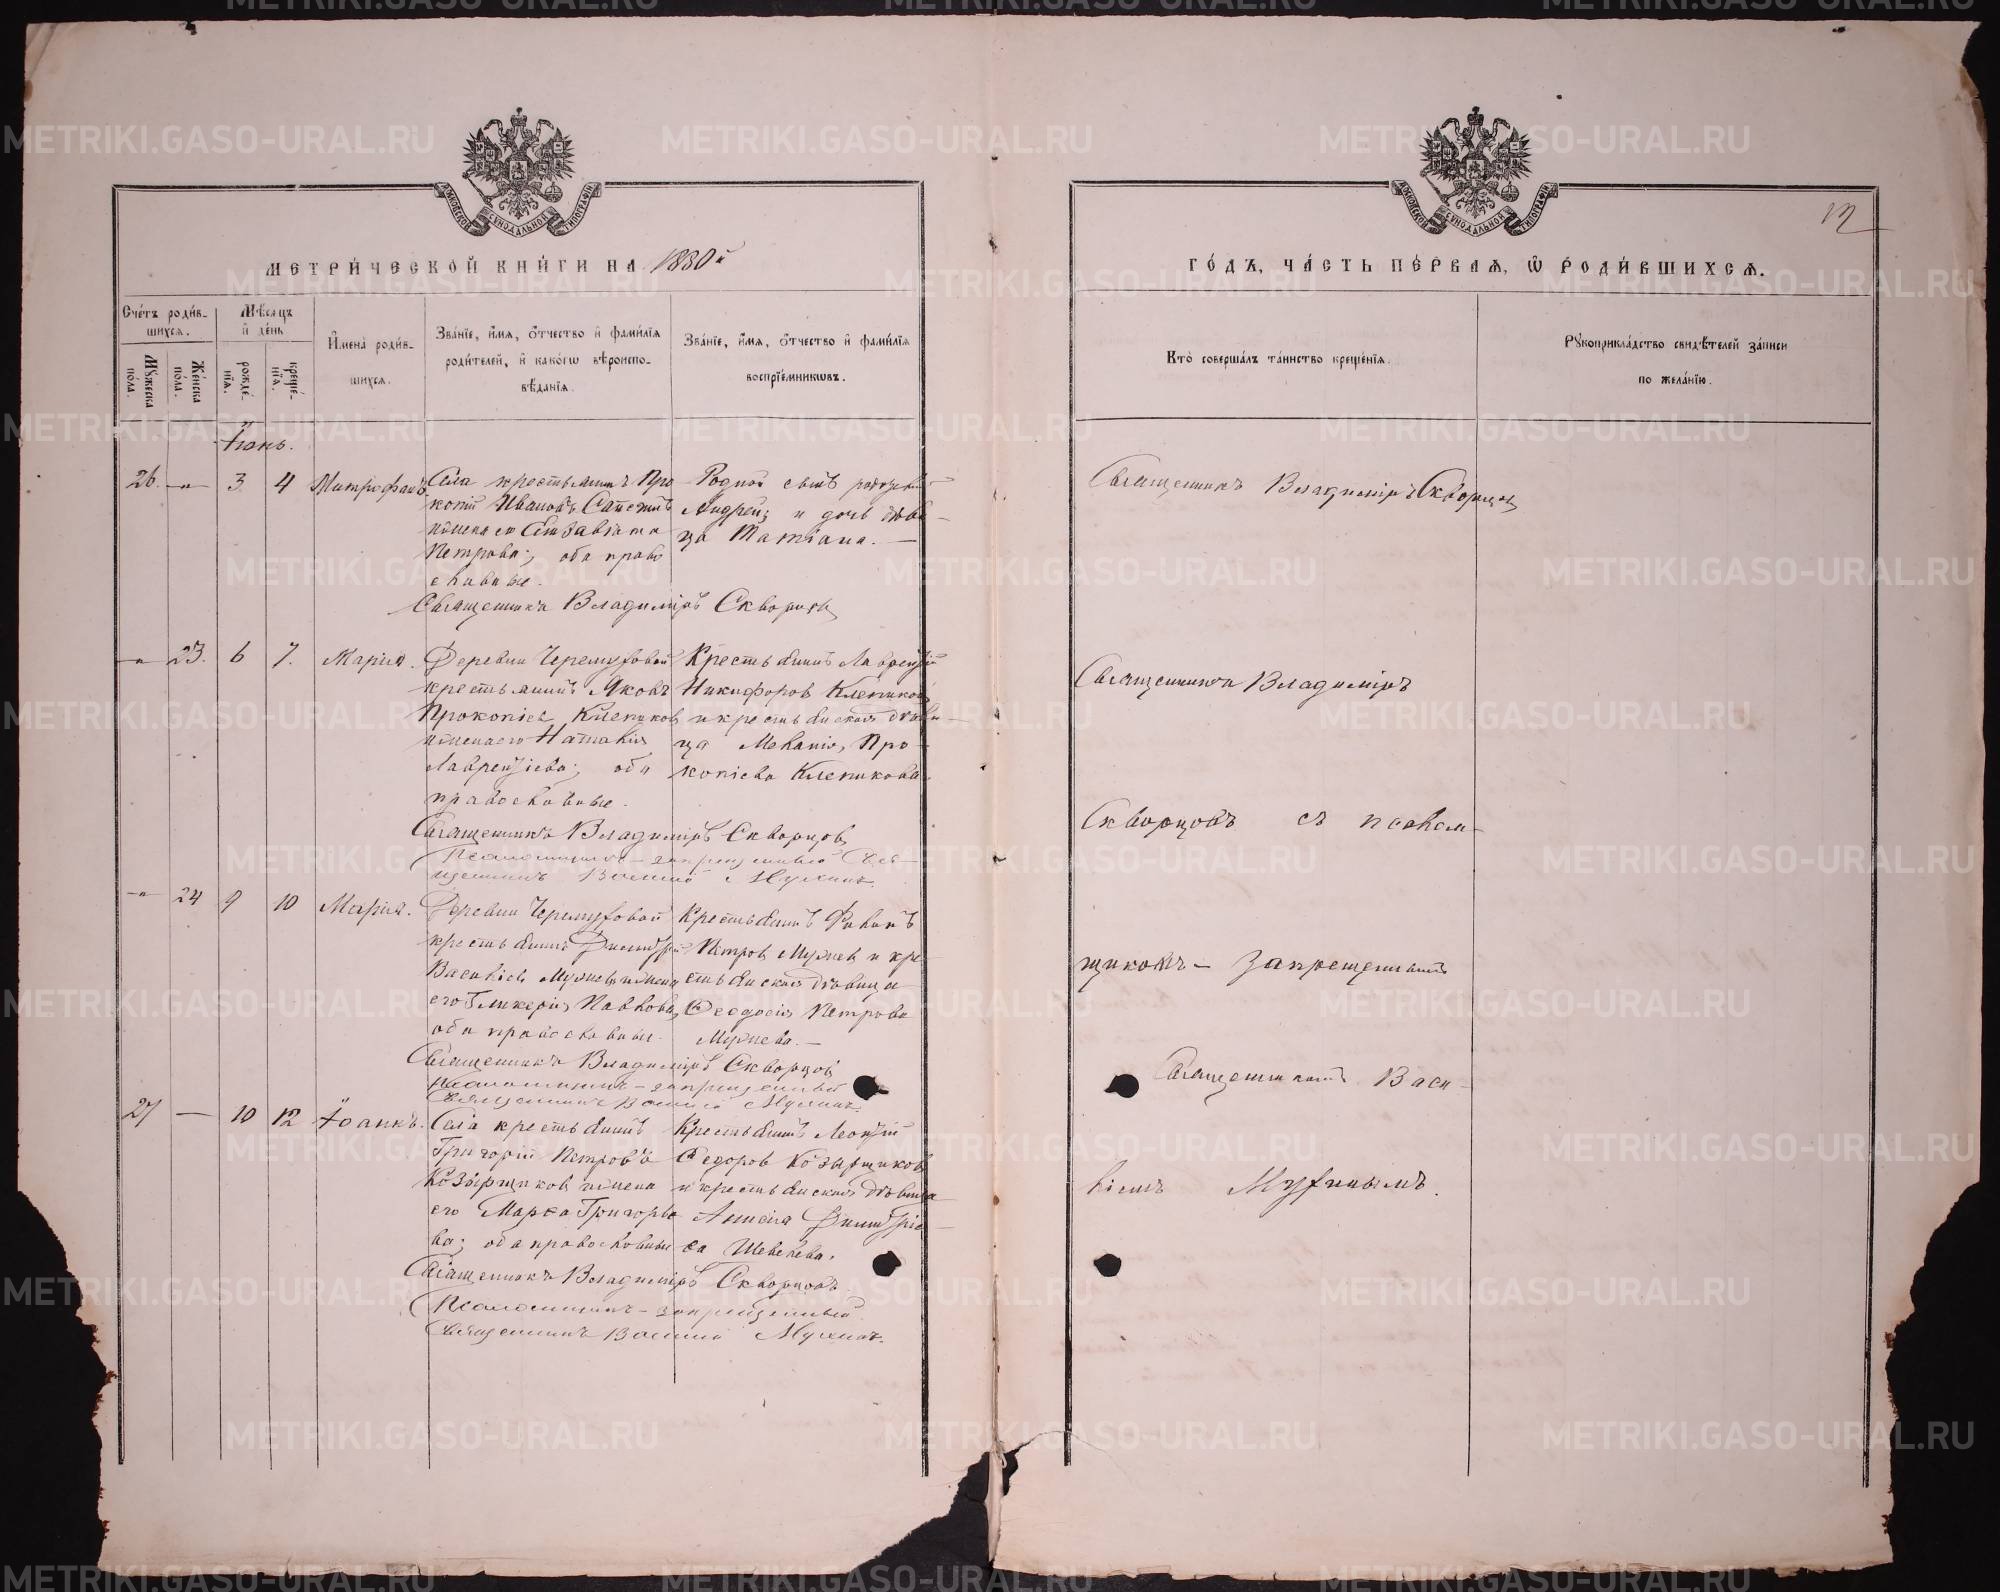 МЕТРИЧЕСКОЙ КНИГИ НА 1880й
ГОДЪ, ЧАСТЬ ПЕРВАЯ, Ѡ РОДИВШИХСЯ.
12
Счетъ родив-
шихся.
Мѣсяцъ
и день
Мужеска
пола.
Женска
пола.
рожде-
нія.
креще-
нія.
Имена родив-
шихся.
Званіе, имя, отчество и фамилія
родителей, и какогѡ вѣроиспо-
вѣданія.
Званіе, имя, отчество и фамилія
воспріемникѡвъ.
Кто совершалъ таинство крещенія.
Рукоприкладство свидѣтелей записи
по желанію.
Іюнь.
26. 3 4 Митрофанъ
Села крестьянинъ Про
копій Ивановъ
и жена его Елизавета
Петрова; оба право
славные.
Священникъ Владиміръ Скворцовъ
Родной сынъ
Андрей и дочь дѣви-
ца Татіана. —
Священникъ Владиміръ Скворцов
23. 6 7. Марія.
Деревни Черемуховой
крестьянинъ Яковъ
Прокопіев Клепиков
и жена его Наталія
Лаврентіева; оба
православные.
Священникъ Владиміръ Скворцов
Псаломщикъ — запрещенный Свя-
щенникъ Василій Мухинъ.
Крестьянинъ Лаврентій
Никифоров Клепиков
и крестьянская дѣви-
ца Меланія Про-
копіева Клепикова.
Священникъ Владиміръ
Скворцовъ съ псалом-
щикомъ — запрещеннымъ
Священникомъ Васи-
ліемъ Мухинымъ.
24 9 10 Марія.
Деревни Черемуховой
крестьянинъ Димитрій
Васильев и жена
его Гликерія Павлова,
оба православны.
Священникъ Владиміръ Скворцов
Псаломщикъ — запрещенный
Священникъ Василій Мухинъ.
Крестьянинъ
Петров и кре
стьянская дѣвица
Ѳеодосія Петрова
27 — 10 12 Іоаннъ.
Села крестьянинъ
Григорій Петровъ
Козырщиков и жена
его Марѳа Григорье
ва; оба православные
Священникъ Владиміръ Скворцовъ
Псаломщикъ — запрещенный
Священникъ Василій Мухинъ.
Крестьянинъ Леонтій
Ѳедоров Козырщиков
и крестьянская дѣвица
Анисія Димитріе-
ва Шевелева.